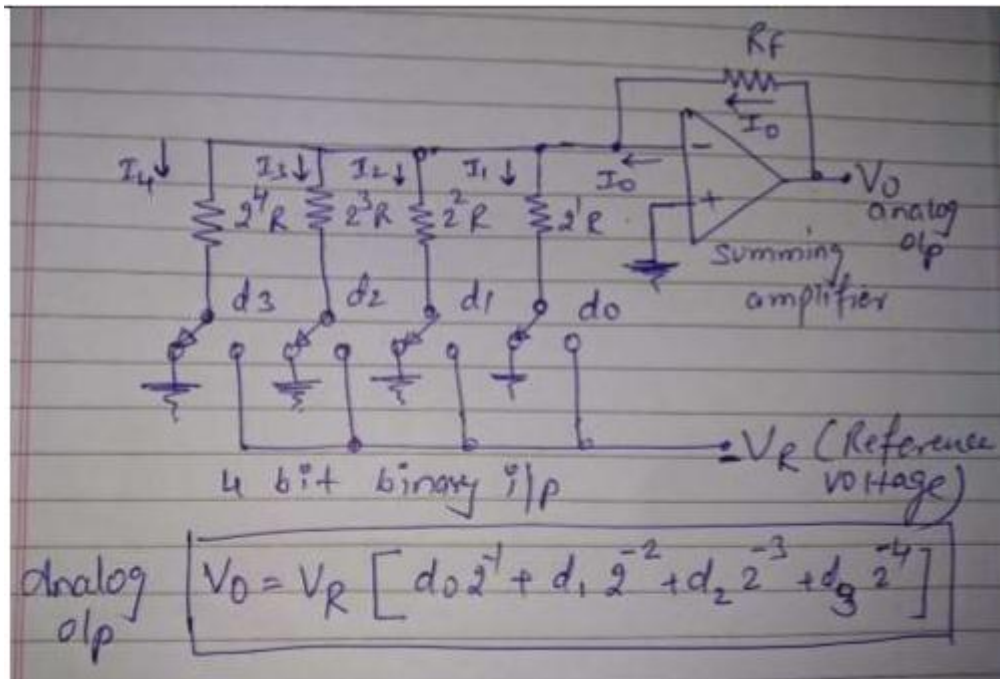 Rf
I0
I4 I3 I2 I1 I0
2⁴R 2³R 2²R 2¹R
- +
V0
analog
o/p
summing
amplifier
d3 d2 d1 d0
-VR (Reference
voltage)
4 bit binary i/p
Analog
o/p
V0 = VR [ d0 2⁻¹ + d1 2⁻² + d2 2⁻³ + d3 2⁻⁴ ]